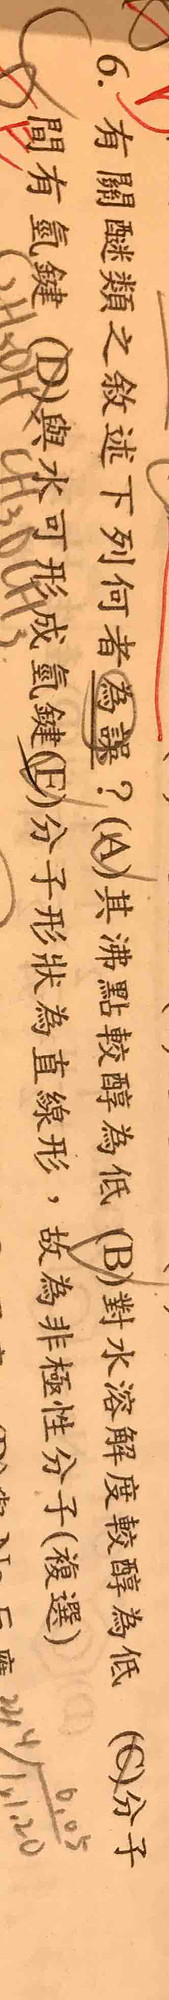 6. 有關醚類之敘述下列何者為誤？(A)其沸點較醇為低 (B)對水溶解度較醇為低 (C)分子
間有氫鍵 (D)與水可形成氫鍵(E)分子形狀為直線形，故為非極性分子(複選)
CH3OCH3